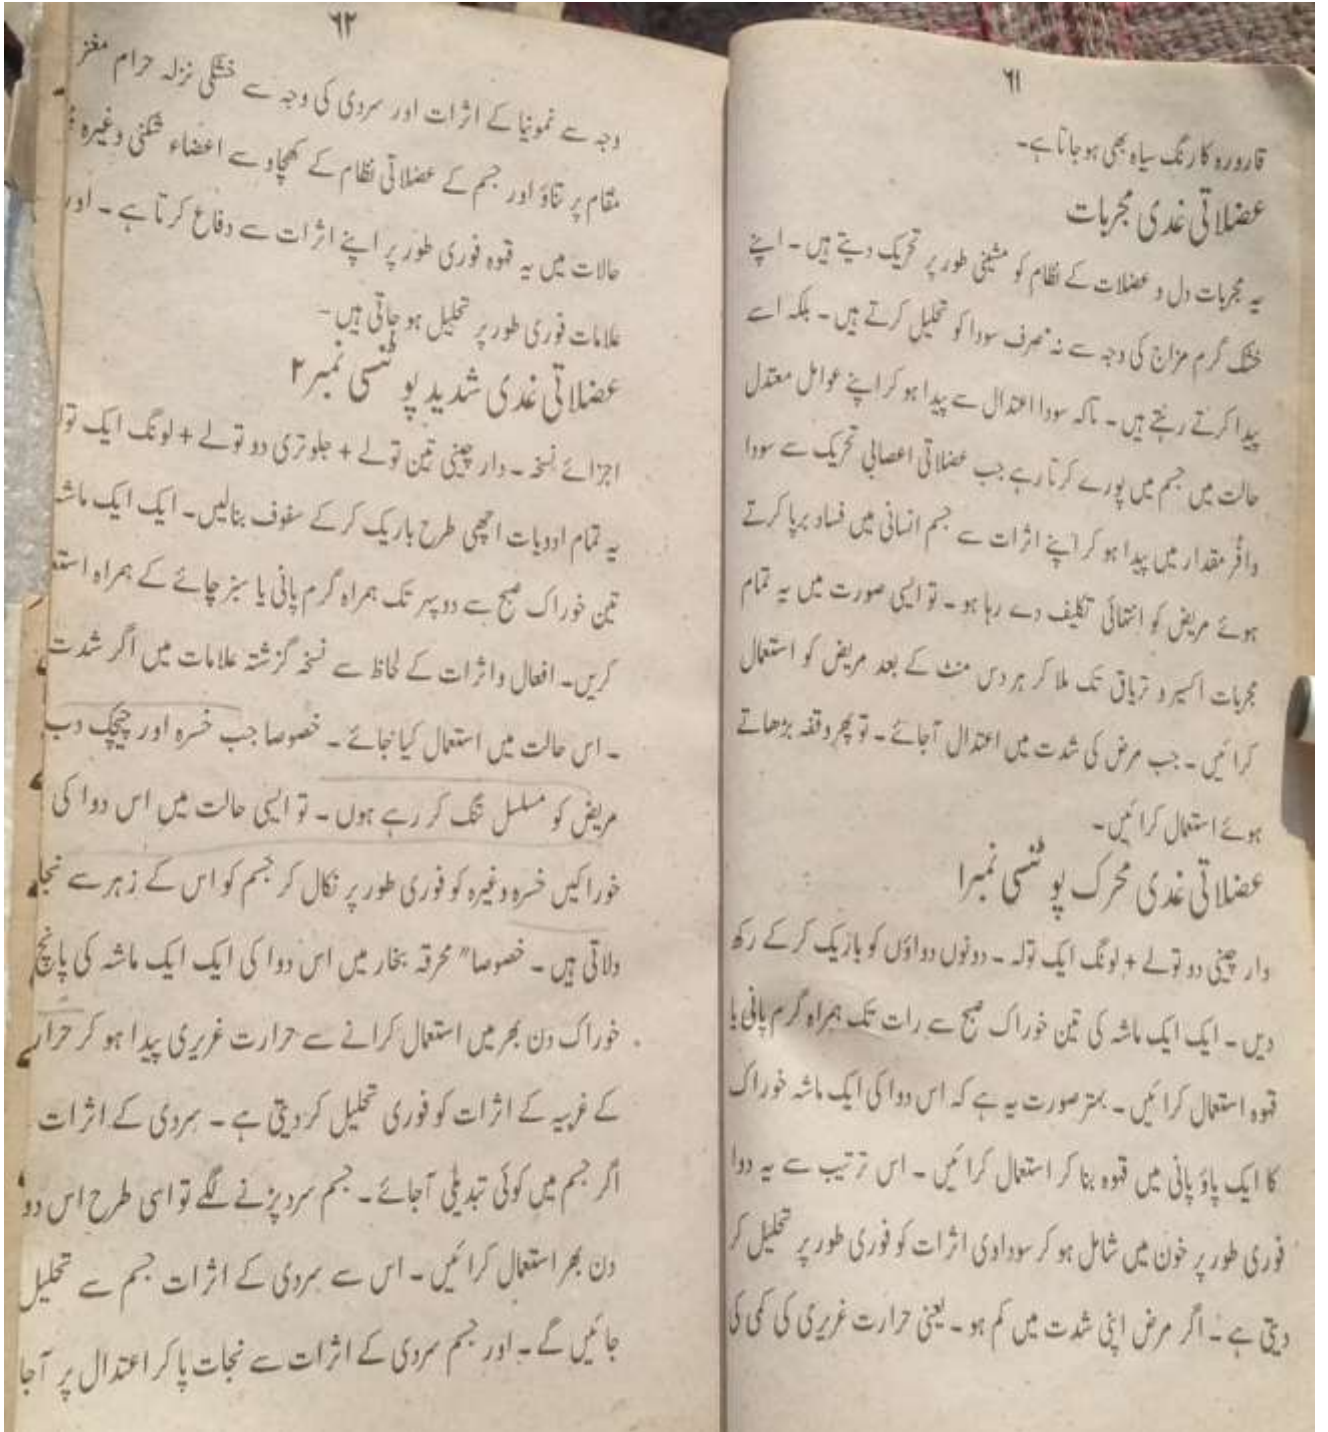 ۶۱
قارورہ کا رنگ سیاہ بھی ہو جاتا ہے۔
عضلاتی غدی مجربات
یہ مجربات دل و عضلات کے نظام کو مشینی طور پر تحریک دیتے ہیں۔ اپنے
خشک گرم مزاج کی وجہ سے نہ صرف سودا کو تحلیل کرتے ہیں۔ بلکہ اسے
پیدا کرتے رہتے ہیں۔ تاکہ سودا اعتدال سے پیدا ہو کر اپنے عوامل معتدل
حالت میں جسم میں پورے کرتا رہے جب عضلاتی اعصابی تحریک سے سودا
وافر مقدار میں پیدا ہو کر اپنے اثرات سے جسم انسانی میں فساد برپا کرتے
ہوئے مریض کو انتہائی تکلیف دے رہا ہو۔ تو ایسی صورت میں یہ تمام
مجربات اکسیر و تریاق تک ملا کر ہر دس منٹ کے بعد مریض کو استعمال
کرائیں۔ جب مرض کی شدت میں اعتدال آجائے۔ تو پھر وقفہ بڑھاتے
ہوئے استعمال کرائیں۔
عضلاتی غدی محرک پوٹنسی نمبر ۱
دار چینی دو تولے + لونگ ایک تولہ۔ دونوں دواؤں کو باریک کر کے رکھ
دیں۔ ایک ایک ماشہ کی تین خوراک صبح سے رات تک ہمراہ گرم پانی یا
قہوہ استعمال کرائیں۔ بہتر صورت یہ ہے کہ اس دوا کی ایک ماشہ خوراک
کا ایک پاؤ پانی میں قہوہ بنا کر استعمال کرائیں۔ اس ترتیب سے یہ دوا
فوری طور پر خون میں شامل ہو کر سوداوی اثرات کو فوری طور پر تحلیل کر
دیتی ہے۔ اگر مرض اپنی شدت میں کم ہو۔ یعنی حرارت غریزی کی کمی کی
۶۲
وجہ سے نمونیا کے اثرات اور سردی کی وجہ سے خشکی نزلہ حرام مغز
مقام پر تناؤ اور جسم کے عضلاتی نظام کے کھچاو سے اعضاء شکنی وغیرہ
حالات میں یہ قہوہ فوری طور پر اپنے اثرات سے دفاع کرتا ہے۔ اور
علامات فوری طور پر تحلیل ہو جاتی ہیں۔
عضلاتی غدی شدید پوٹنسی نمبر ۲
اجزائے نسخہ۔ دار چینی تین تولے + جلوتری دو تولے + لونگ ایک تولہ
یہ تمام ادویات اچھی طرح باریک کر کے سفوف بنالیں۔ ایک ایک ماشہ
تین خوراک صبح سے دوپہر تک ہمراہ گرم پانی یا سبز چائے کے ہمراہ استع
کریں۔ افعال و اثرات کے لحاظ سے نسخہ گزشتہ علامات میں اگر شدت
۔ اس حالت میں استعمال کیا جائے۔ خصوصا جب خسرہ اور چیچک دب
مریض کو مسلسل تنگ کر رہے ہوں۔ تو ایسی حالت میں اس دوا کی
خوراکیں خسرہ وغیرہ کو فوری طور پر نکال کر جسم کو اس کے زہر سے نجا
دلاتی ہیں۔ خصوصا" محرقہ بخار میں اس دوا کی ایک ایک ماشہ کی پانچ
خوراک دن بھر میں استعمال کرانے سے حرارت غریزی پیدا ہو کر حرار
کے غریبہ کے اثرات کو فوری تحلیل کر دیتی ہے۔ سردی کے اثرات
اگر جسم میں کوئی تبدیلی آجائے۔ جسم سرد پڑنے لگے تو اسی طرح اس دو
دن بھر استعمال کرائیں۔ اس سے سردی کے اثرات جسم سے تحلیل
جائیں گے۔ اور جسم سردی کے اثرات سے نجات پا کر اعتدال پر آجا